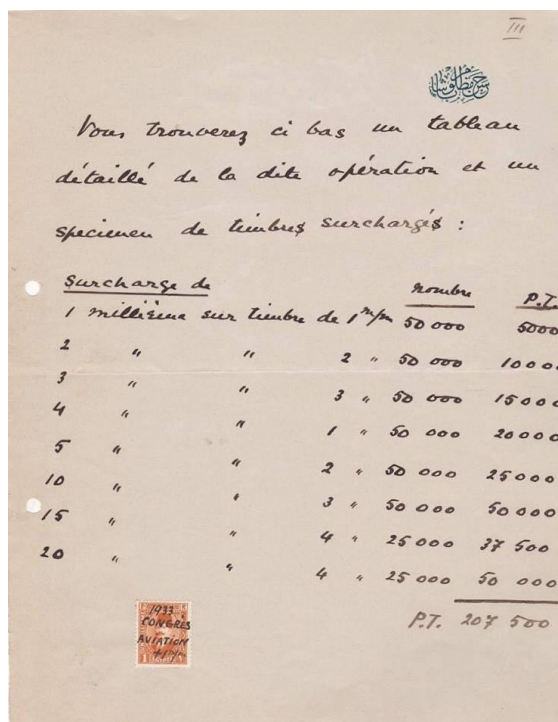 III
حسن مظلوم باشا
Vous trouverez ci bas un tableau
détaillé de la dite opération et un
specimen de timbres surchargés :
Surcharge de nombre P.T.
1 millième sur timbre de 1 m/m 50 000 5000
2 " " 2 " 50 000 10000
3 " " 3 " 50 000 15000
4 " " 1 " 50 000 20000
5 " " 2 " 50 000 25000
10 " " 3 " 50 000 50000
15 " " 4 " 25000 37 500
20 " " 4 " 25000 50 000
P.T. 207 500
1933
CONGRÈS
AVIATION
+1 m/m
1